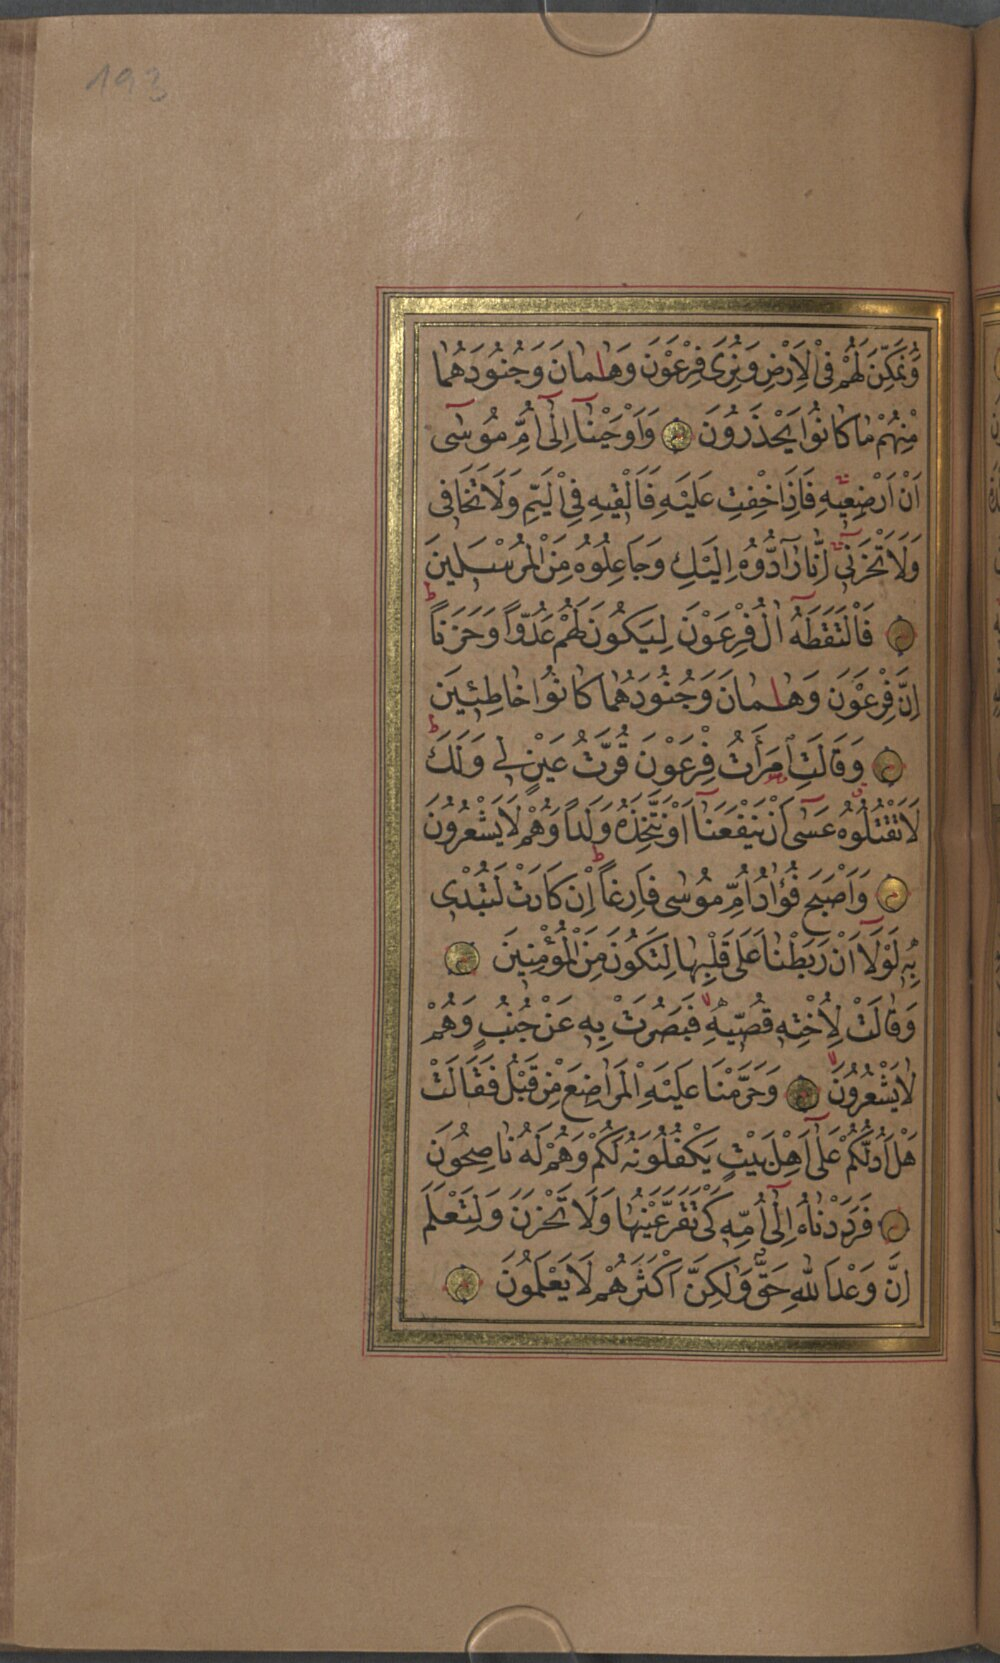 193
وَنُمَكِّنَ لَهُمْ فِى الْاَرْضِ وَنُرِىَ فِرْعَوْنَ وَهَامَانَ وَجُنُودَهُمَا
مِنْهُمْ مَا كَانُوا يَحْذَرُونَ وَاَوْحَيْنَٓا اِلٰٓى اُمِّ مُوسٰٓى
اَنْ اَرْضِعِيهِ فَاِذَا خِفْتِ عَلَيْهِ فَاَلْقِيهِ فِى الْيَمِّ وَلَا تَخَافِى
وَلَا تَحْزَنِى اِنَّا رَآدُّوهُ اِلَيْكِ وَجَاعِلُوهُ مِنَ الْمُرْسَلِينَ
فَالْتَقَطَهُٓ اٰلُ فِرْعَوْنَ لِيَكُونَ لَهُمْ عَدُوًّا وَحَزَنًا
اِنَّ فِرْعَوْنَ وَهَامَانَ وَجُنُودَهُمَا كَانُوا خَاطِئِينَ
وَقَالَتِ امْرَاَتُ فِرْعَوْنَ قُرَّتُ عَيْنٍ لِى وَلَكَ
لَا تَقْتُلُوهُ عَسٰٓى اَنْ يَنْفَعَنَٓا اَوْ نَتَّخِذَهُ وَلَدًا وَهُمْ لَا يَشْعُرُونَ
وَاَصْبَحَ فُؤَادُ اُمِّ مُوسٰى فَارِغًا اِنْ كَادَتْ لَتُبْدِى
بِهِ لَوْلَٓا اَنْ رَبَطْنَا عَلٰى قَلْبِهَا لِتَكُونَ مِنَ الْمُؤْمِنِينَ
وَقَالَتْ لِاُخْتِهِ قُصِّيهِ فَبَصُرَتْ بِهِ عَنْ جُنُبٍ وَهُمْ
لَا يَشْعُرُونَ وَحَرَّمْنَا عَلَيْهِ الْمَرَاضِعَ مِنْ قَبْلُ فَقَالَتْ
هَلْ اَدُلُّكُمْ عَلٰٓى اَهْلِ بَيْتٍ يَكْفُلُونَهُ لَكُمْ وَهُمْ لَهُ نَاصِحُونَ
فَرَدَدْنَاهُ اِلٰٓى اُمِّهِ كَىْ تَقَرَّ عَيْنُهَا وَلَا تَحْزَنَ وَلِتَعْلَمَ
اِنَّ وَعْدَ اللهِ حَقٌّ وَلٰكِنَّ اَكْثَرَهُمْ لَا يَعْلَمُونَ